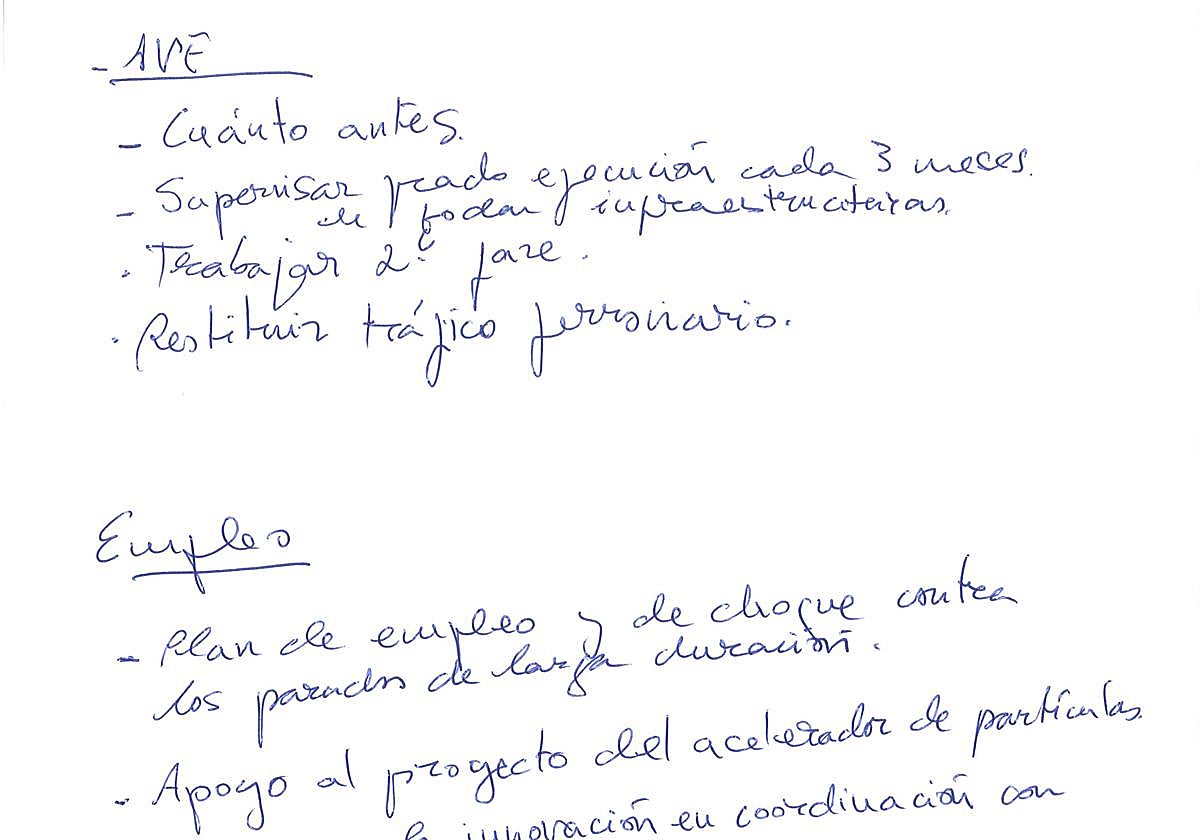 - AVE
- Cuánto antes.
- Supervisar grado ejecución cada 3 meces.
de todas infraestructuras.
· Trabajar 2ª faze.
· Restituir tráfico ferroviario.
Empleo
- Plan de empleo y de choque contra
los parados de larga duración.
- Apoyo al proyecto del acelerador de partículas.
innovación en coordinación con